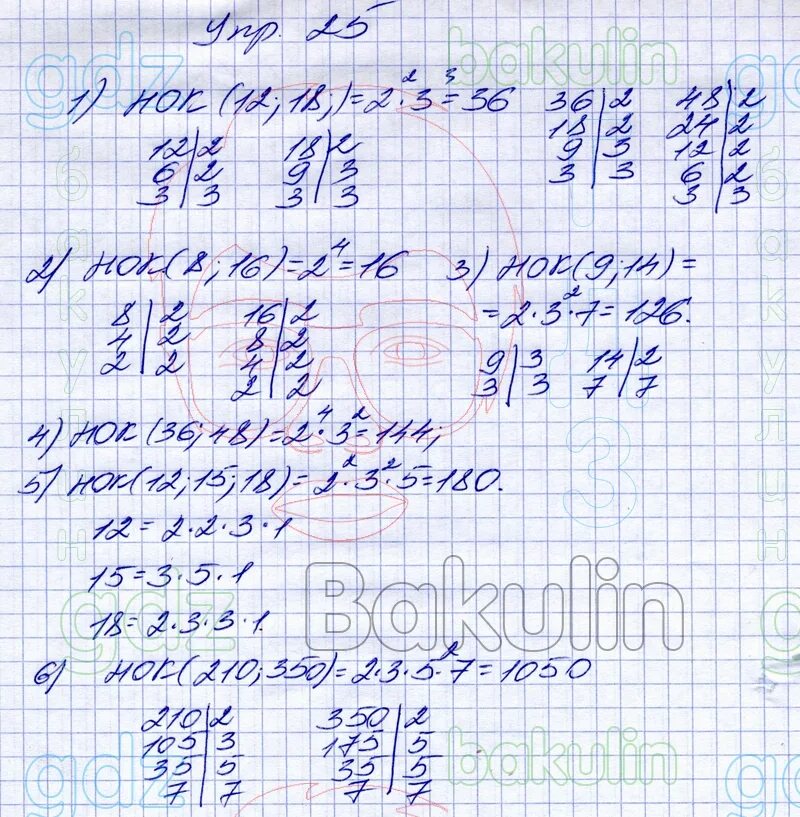 Упр. 25
1) НОК (12; 18;) = 2² · 3³ = 36
12 | 2
6 | 2
3 | 3
18 | 2
9 | 3
3 | 3
36 | 2
18 | 2
9 | 3
3 | 3
48 | 2
24 | 2
12 | 2
6 | 2
3 | 3
2) НОК (8; 16) = 2⁴ = 16
8 | 2
4 | 2
2 | 2
16 | 2
8 | 2
4 | 2
2 | 2
3) НОК (9; 14) =
= 2 · 3² · 7 = 126.
9 | 3
3 | 3
14 | 2
7 | 7
4) НОК (36; 48) = 2⁴ · 3² = 144;
5) НОК (12; 15; 18) = 2² · 3² · 5 = 180.
12 = 2 · 2 · 3 · 1
15 = 3 · 5 · 1
18 = 2 · 3 · 3 · 1.
6) НОК (210; 350) = 2 · 3 · 5² · 7 = 1050
210 | 2
105 | 3
35 | 5
7 | 7
350 | 2
175 | 5
35 | 5
7 | 7
gdz
bakulin
gdz
бакулин
бакулин
gdz
Bakulin
gdz
gdz
bakulin
gdz